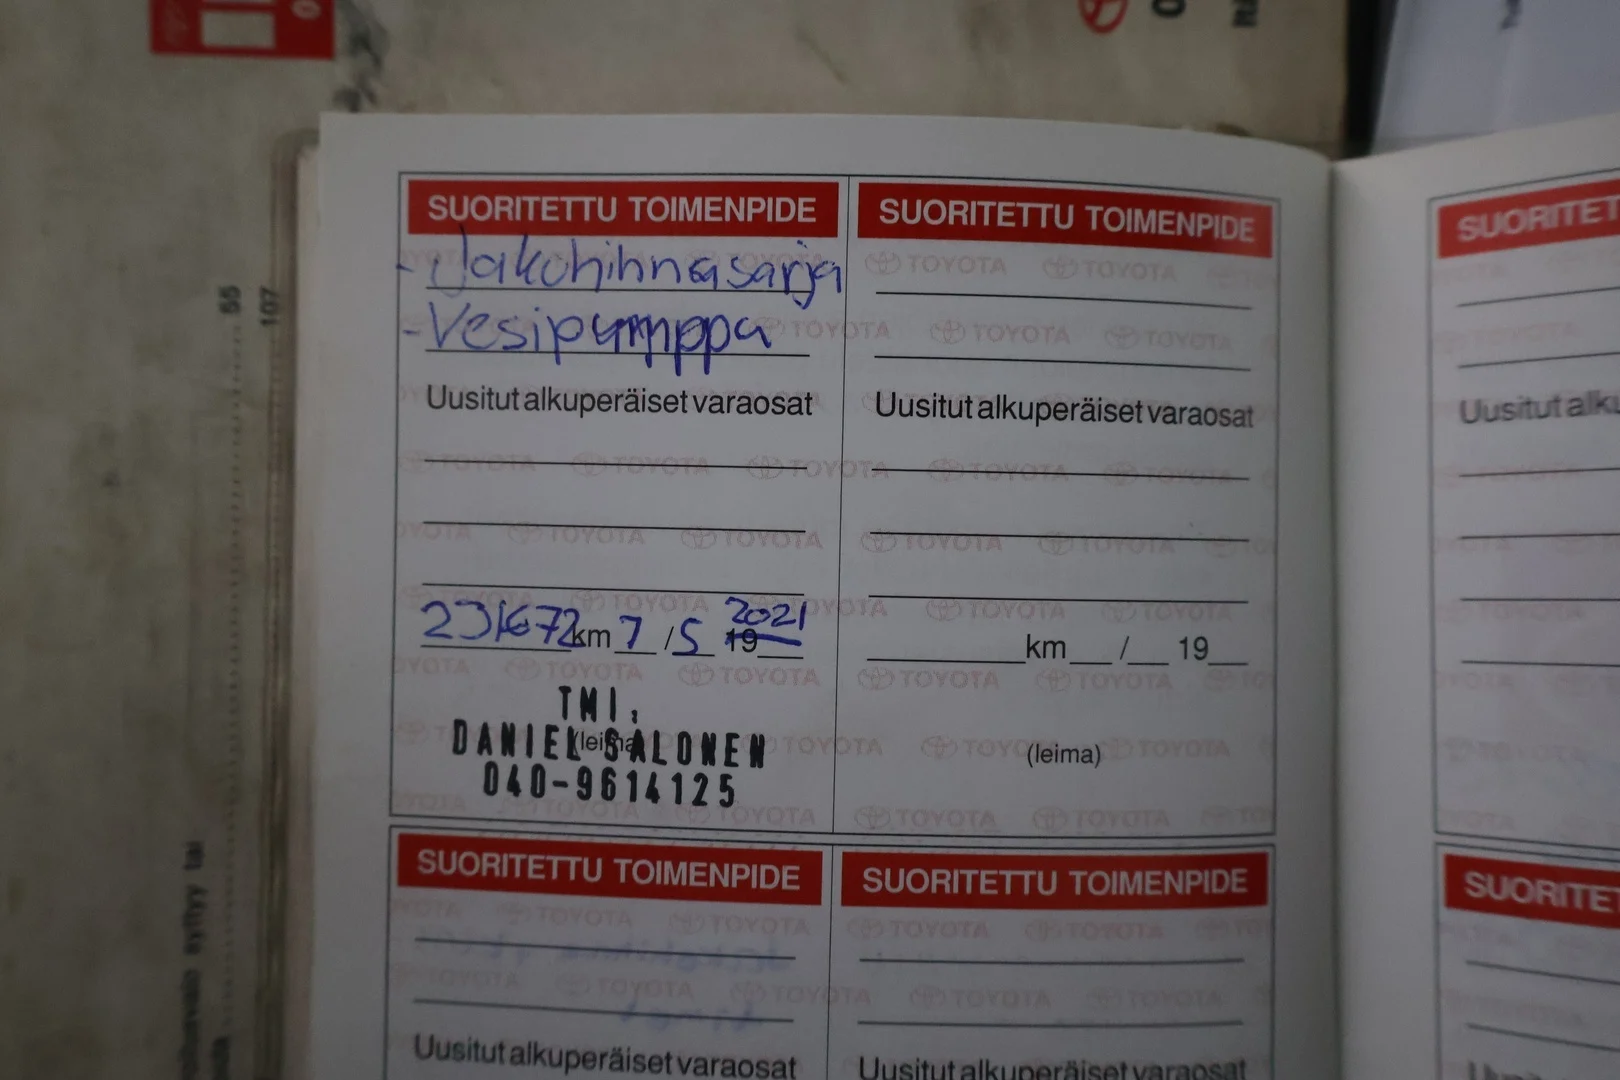 55
107
SUORITETTU TOIMENPIDE
- Jakohihnasarja
- Vesipumppa
Uusitut alkuperäiset varaosat
231672 km 7 / 5 19 2021
TMI,
(leima)
DANIEL SALONEN
040-9614125
SUORITETTU TOIMENPIDE
Uusitut alkuperäiset varaosat
km / 19
(leima)
SUORITETTU TOIMENPIDE
Uusitut alkuperäiset varaosat
SUORITETTU TOIMENPIDE
Uusitut alkuperäiset varaosat
SUORITET
Uusitut alku
SUORITE
syttyy tai
TOYOTA